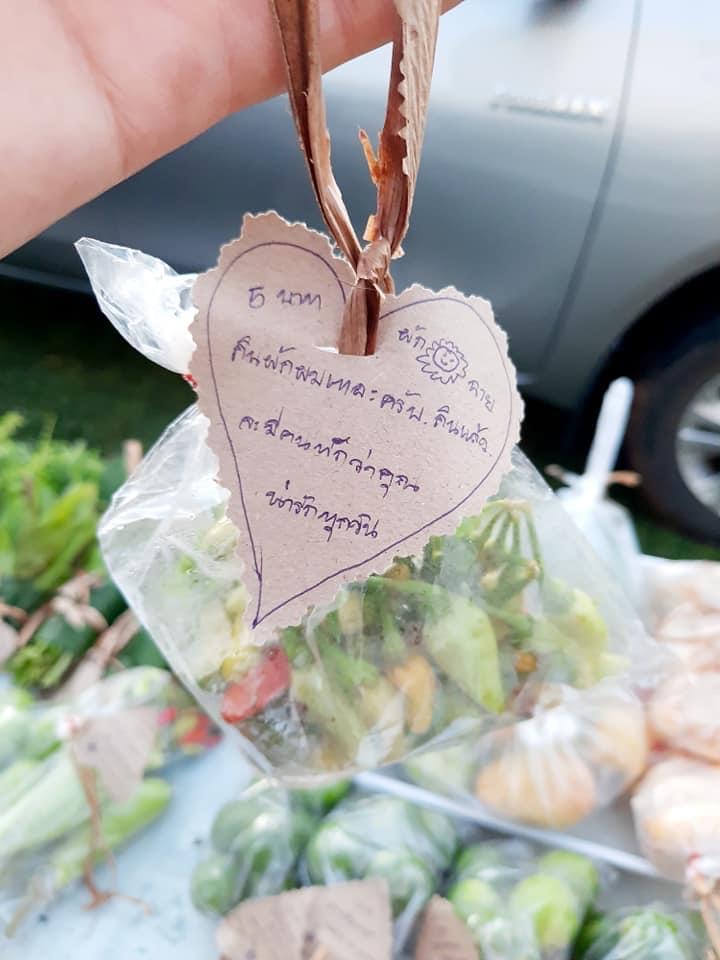 5 บาท
ผัก ฉาย
กินผักผมเถอะครับ. กินแล้ว
จะมีคนทักว่าคุณ
น่ารักทุกวัน